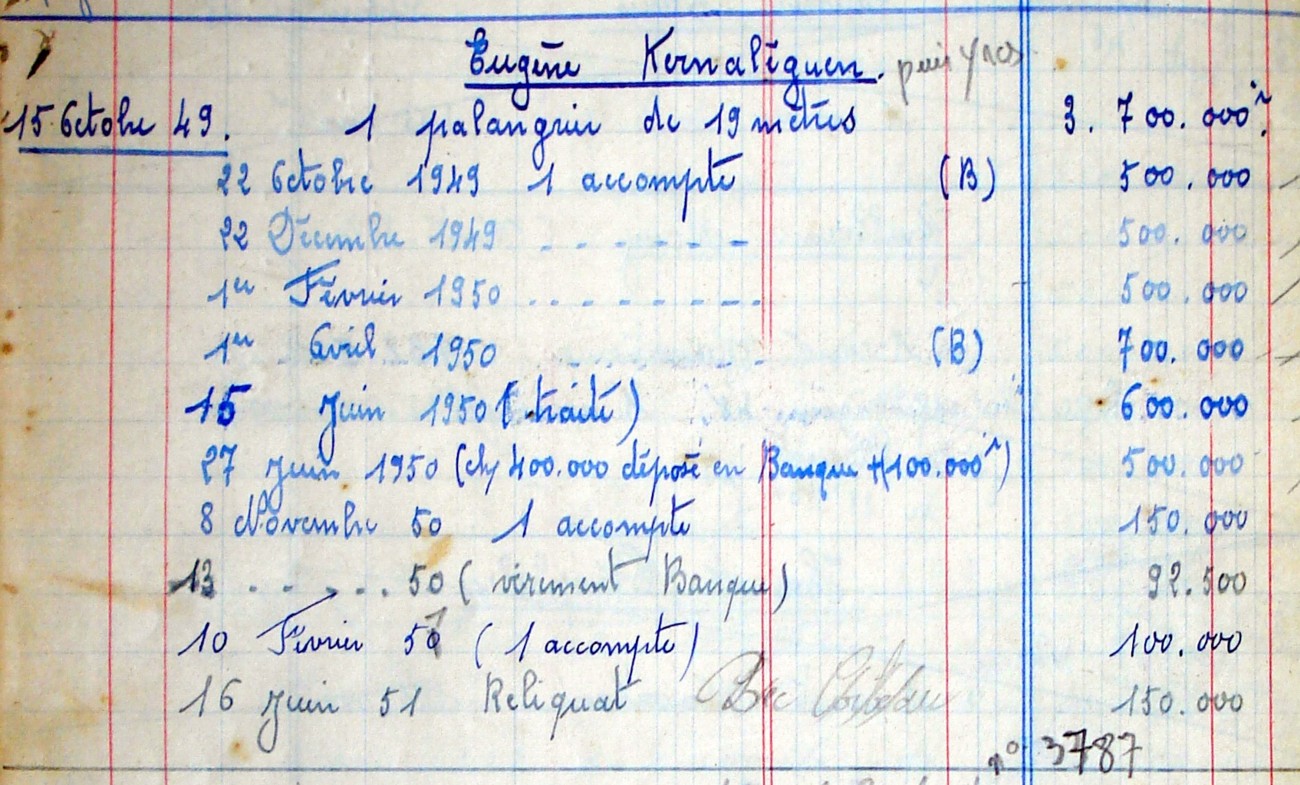 Eugène Kernaléguen. puis Yves
15 Octobre 49. 1 palangrier de 19 mètres 3. 700. 000 f.
22 Octobre 1949 1 accompte (B) 500. 000
22 Décembre 1949 - - - - - - - 500. 000
1er Février 1950 - - - - - - - - 500. 000
1er Avril 1950 - - - - - - - (B) 700. 000
15 Juin 1950 (traite) 600. 000
27 Juin 1950 (ch/ 400.000 déposé en Banque + (100.000 f) 500. 000
8 Novembre 50 1 accompte 150. 000
13 - - - - - 50 ( virement Banque) 92. 500
10 Février 51 ( 1 accompte) 100. 000
16 Juin 51 Reliquat 150. 000
n° 3787